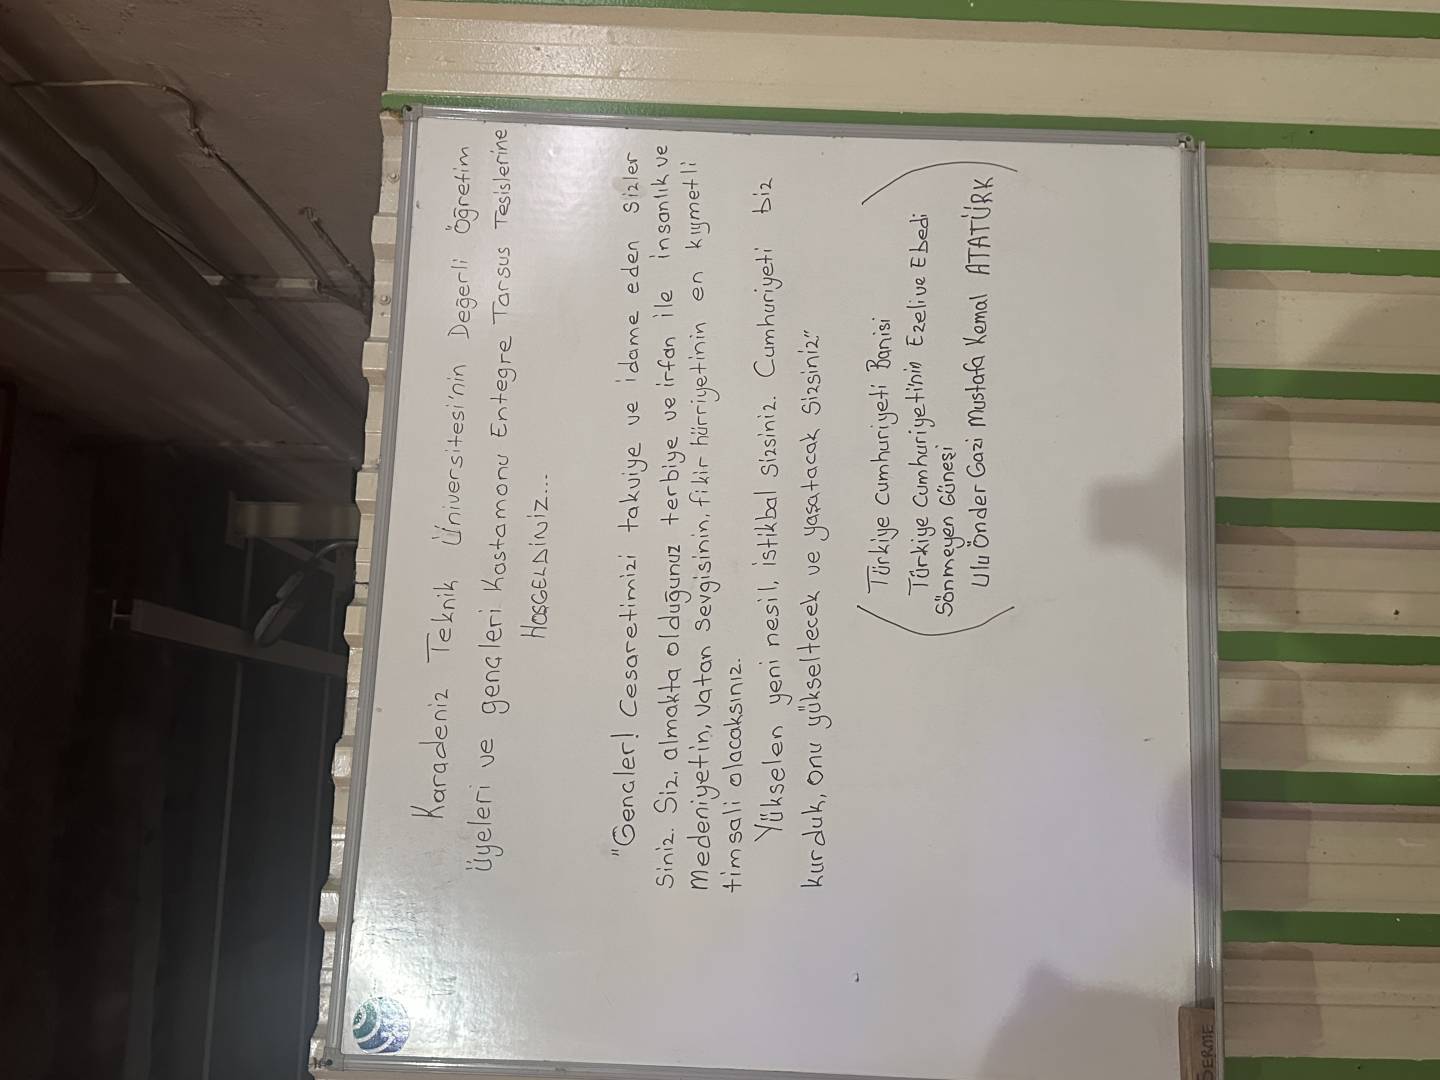 Karadeniz Teknik Üniversitesi'nin Değerli Öğretim
Üyeleri ve gençleri Kastamonu Entegre Tarsus Tesislerine
HOŞGELDİNİZ...
"Gençler! Cesaretimizi takviye ve idame eden sizler
siniz. Siz, almakta olduğunuz terbiye ve irfan ile insanlık ve
Medeniyetin, vatan sevgisinin, fikir hürriyetinin en kıymetli
timsali olacaksınız.
Yükselen yeni nesil, istikbal sizsiniz. Cumhuriyeti biz
kurduk, onu yükseltecek ve yaşatacak sizsiniz"
(Türkiye Cumhuriyeti Banisi
Türkiye Cumhuriyeti'nin Ezelive Ebedi
Sönmeyen Güneşi
Ulu Önder Gazi Mustafa Kemal ATATÜRK)